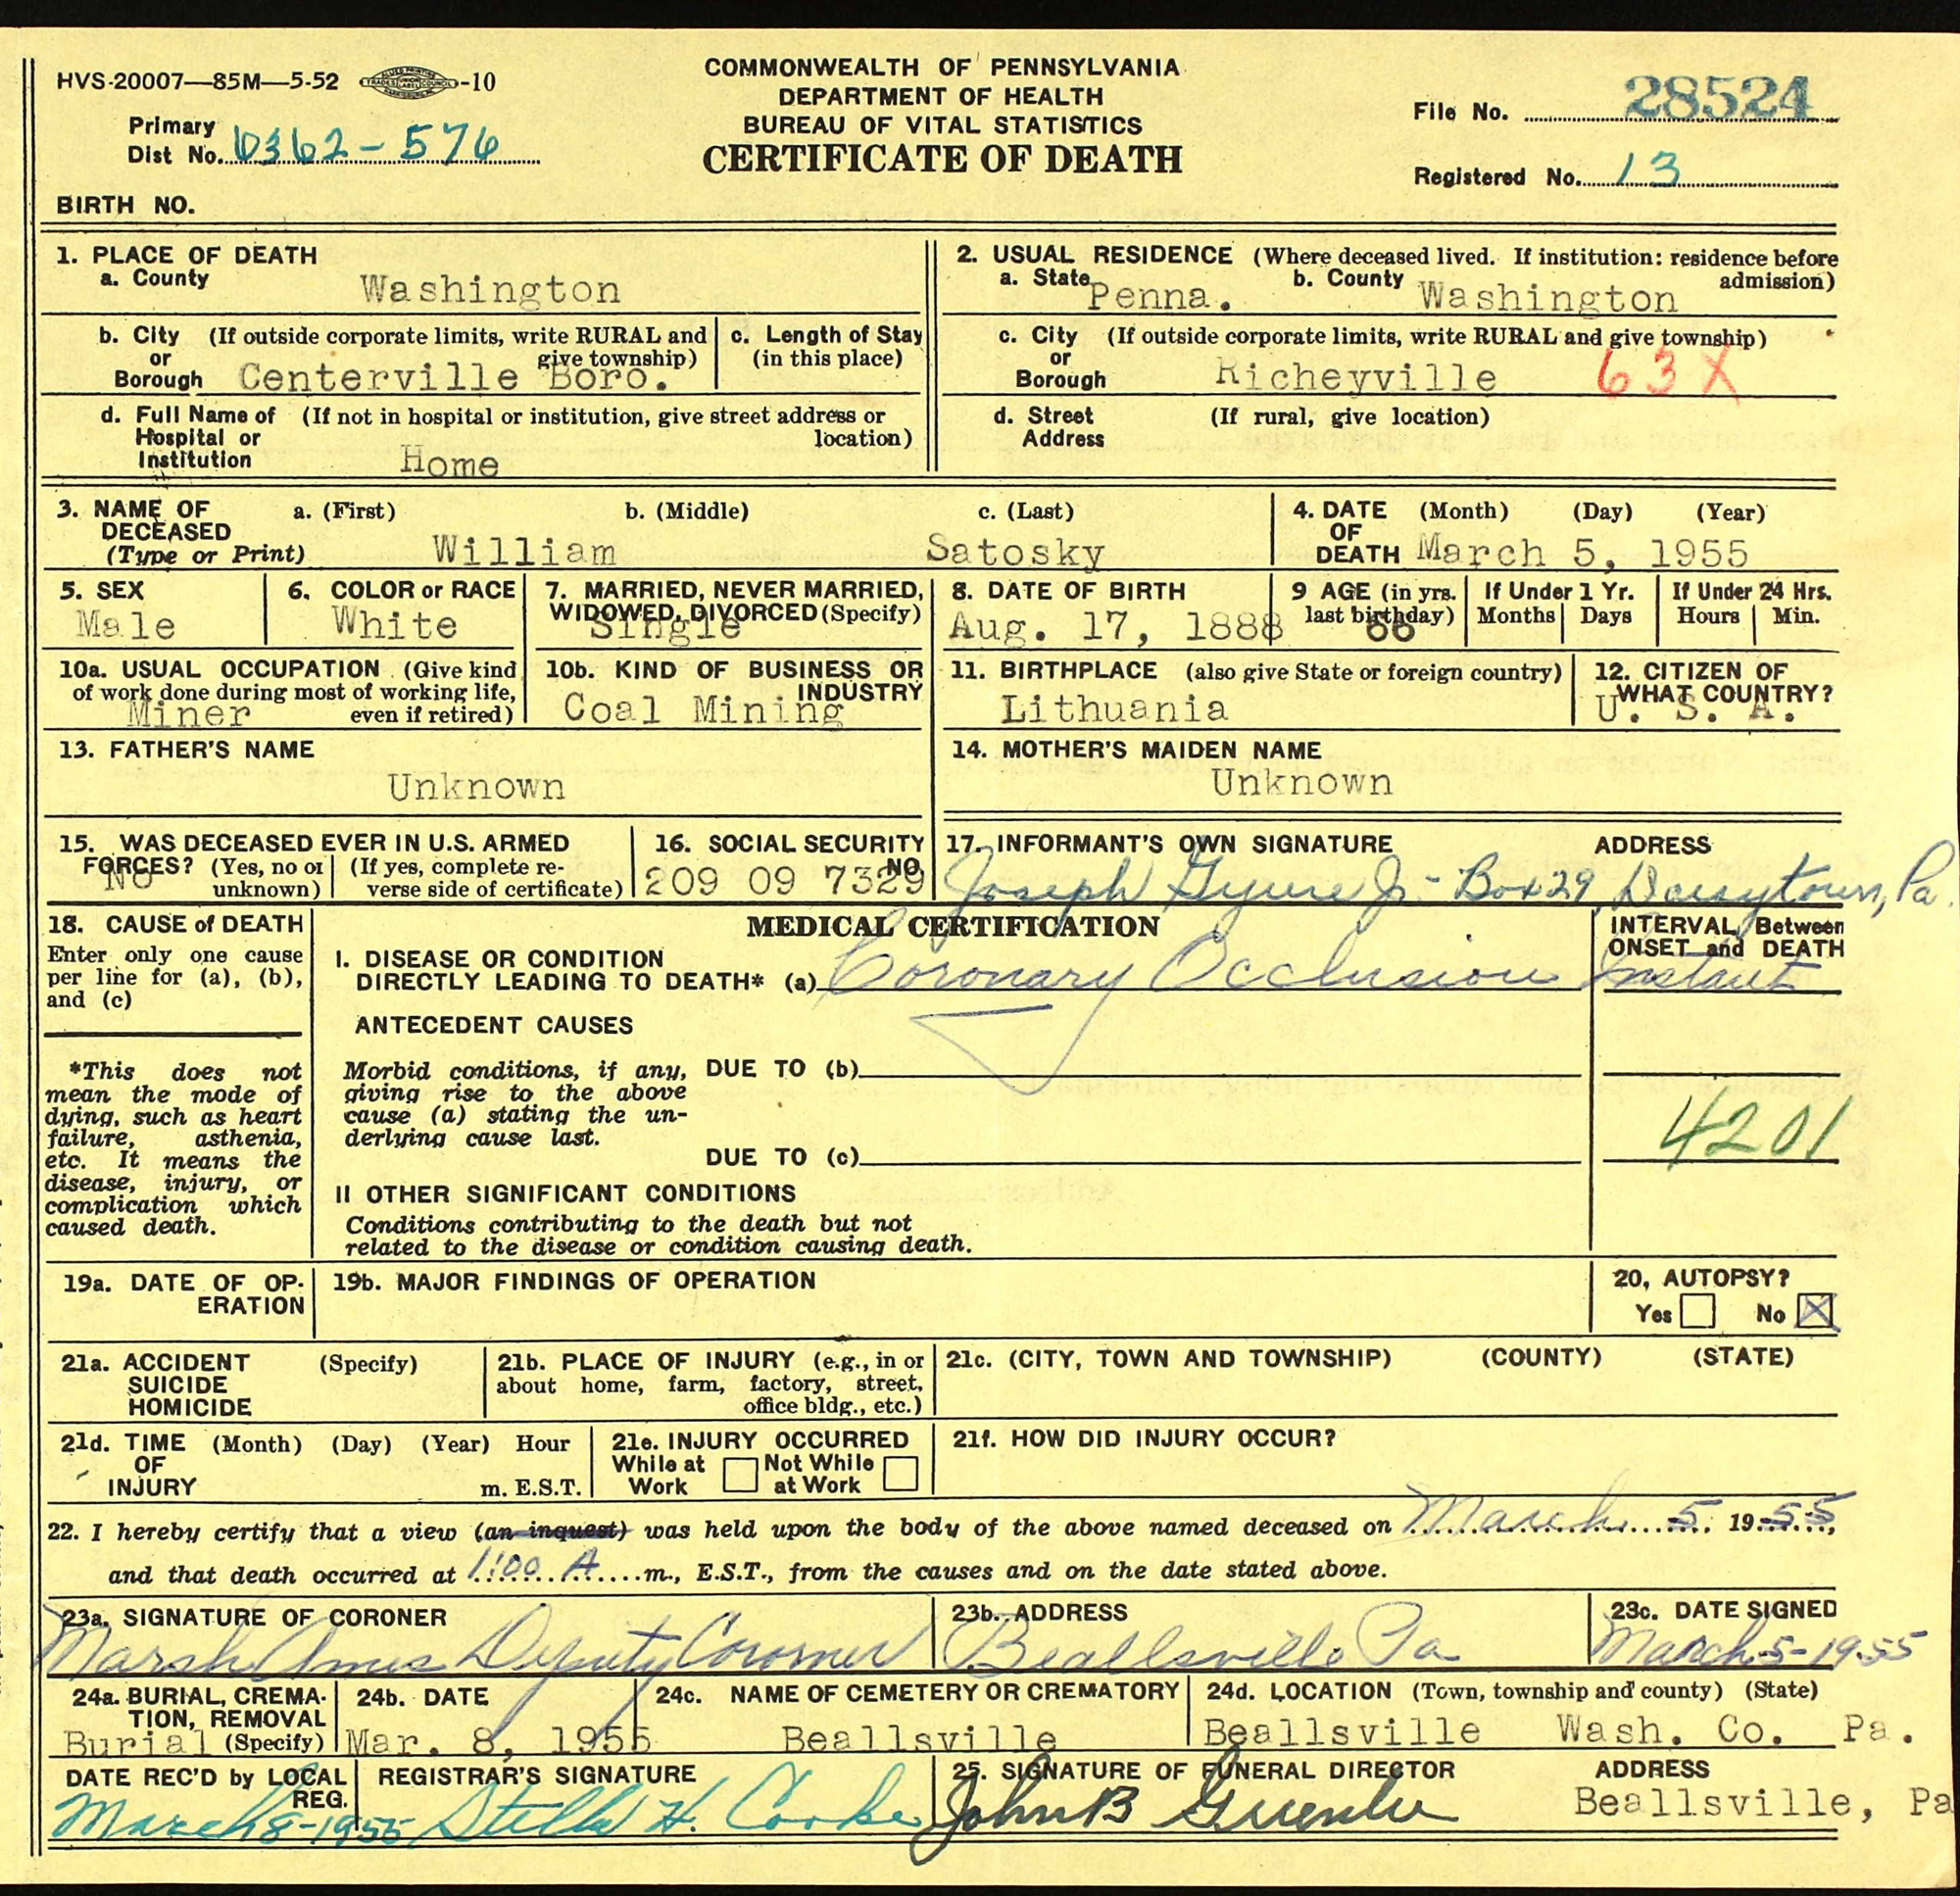 HVS-20007—85M—5-52 -10
COMMONWEALTH OF PENNSYLVANIA
DEPARTMENT OF HEALTH
BUREAU OF VITAL STATISTICS
CERTIFICATE OF DEATH
File No. 28524
Primary
Dist No. 6362-576
Registered No. 13
BIRTH NO.
1. PLACE OF DEATH
a. County Washington
2. USUAL RESIDENCE (Where deceased lived. If institution: residence before admission)
a. State Penna. b. County Washington
b. City or Borough (If outside corporate limits, write RURAL and give township)
Centerville Boro.
c. Length of Stay (in this place)
c. City or Borough (If outside corporate limits, write RURAL and give township)
Richeyville 63X
d. Full Name of Hospital or Institution (If not in hospital or institution, give street address or location)
Home
d. Street Address (If rural, give location)
3. NAME OF DECEASED (Type or Print)
a. (First) b. (Middle) c. (Last)
William Satosky
4. DATE OF DEATH (Month) (Day) (Year)
March 5, 1955
5. SEX
Male
6. COLOR or RACE
White
7. MARRIED, NEVER MARRIED, WIDOWED, DIVORCED (Specify)
Single
8. DATE OF BIRTH
Aug. 17, 1888
9 AGE (in yrs. last birthday)
66
If Under 1 Yr.
Months Days
If Under 24 Hrs.
Hours Min.
10a. USUAL OCCUPATION (Give kind of work done during most of working life, even if retired)
Miner
10b. KIND OF BUSINESS OR INDUSTRY
Coal Mining
11. BIRTHPLACE (also give State or foreign country)
Lithuania
12. CITIZEN OF WHAT COUNTRY?
U. S. A.
13. FATHER'S NAME
Unknown
14. MOTHER'S MAIDEN NAME
Unknown
15. WAS DECEASED EVER IN U.S. ARMED FORCES? (Yes, no or unknown) (If yes, complete reverse side of certificate)
No
16. SOCIAL SECURITY NO.
209 09 7329
17. INFORMANT'S OWN SIGNATURE ADDRESS
Joseph Gyure Jr - Box 29, Daisytown, Pa.
18. CAUSE of DEATH
Enter only one cause per line for (a), (b), and (c)
*This does not mean the mode of dying, such as heart failure, asthenia, etc. It means the disease, injury, or complication which caused death.
MEDICAL CERTIFICATION
INTERVAL Between ONSET and DEATH
I. DISEASE OR CONDITION
DIRECTLY LEADING TO DEATH* (a) Coronary Occlusion Instant
ANTECEDENT CAUSES
Morbid conditions, if any, giving rise to the above cause (a) stating the underlying cause last.
DUE TO (b)
DUE TO (c)
4201
II OTHER SIGNIFICANT CONDITIONS
Conditions contributing to the death but not related to the disease or condition causing death.
19a. DATE OF OPERATION
19b. MAJOR FINDINGS OF OPERATION
20, AUTOPSY?
Yes No X
21a. ACCIDENT SUICIDE HOMICIDE (Specify)
21b. PLACE OF INJURY (e.g., in or about home, farm, factory, street, office bldg., etc.)
21c. (CITY, TOWN AND TOWNSHIP) (COUNTY) (STATE)
21d. TIME OF INJURY (Month) (Day) (Year) Hour m. E.S.T.
21e. INJURY OCCURRED
While at Work Not While at Work
21f. HOW DID INJURY OCCUR?
22. I hereby certify that a view (an inquest) was held upon the body of the above named deceased on March 5, 1955,
and that death occurred at 1:00 A m., E.S.T., from the causes and on the date stated above.
23a. SIGNATURE OF CORONER
Marsh Ames Deputy Coroner
23b. ADDRESS
Beallsville Pa
23c. DATE SIGNED
March-5-1955
24a. BURIAL, CREMATION, REMOVAL (Specify)
Burial
24b. DATE
Mar. 8, 1955
24c. NAME OF CEMETERY OR CREMATORY
Beallsville
24d. LOCATION (Town, township and county) (State)
Beallsville Wash. Co. Pa.
DATE REC'D by LOCAL REG.
March 8-1955
REGISTRAR'S SIGNATURE
Stella H. Cooke
25. SIGNATURE OF FUNERAL DIRECTOR
John B Greenlee
ADDRESS
Beallsville, Pa